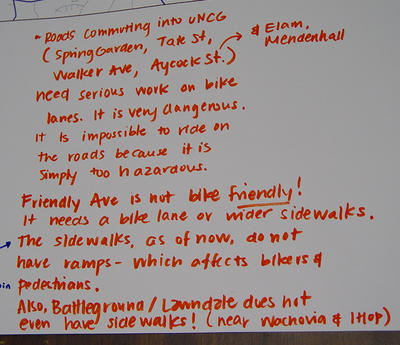 - Roads commuting into UNCG
(Spring Garden, Tate St,
Walker Ave, Aycock St.) & Elam,
Mendenhall
need serious work on bike
lanes. It is very dangerous.
It is impossible to ride on
the roads because it is
simply too hazardous.
Friendly Ave is not bike friendly!
It needs a bike lane or wider sidewalks.
The sidewalks, as of now, do not
have ramps - which affects bikers &
pedestrians.
Also, Battleground / Lawndale does not
even have sidewalks! (near Wachovia & IHop)